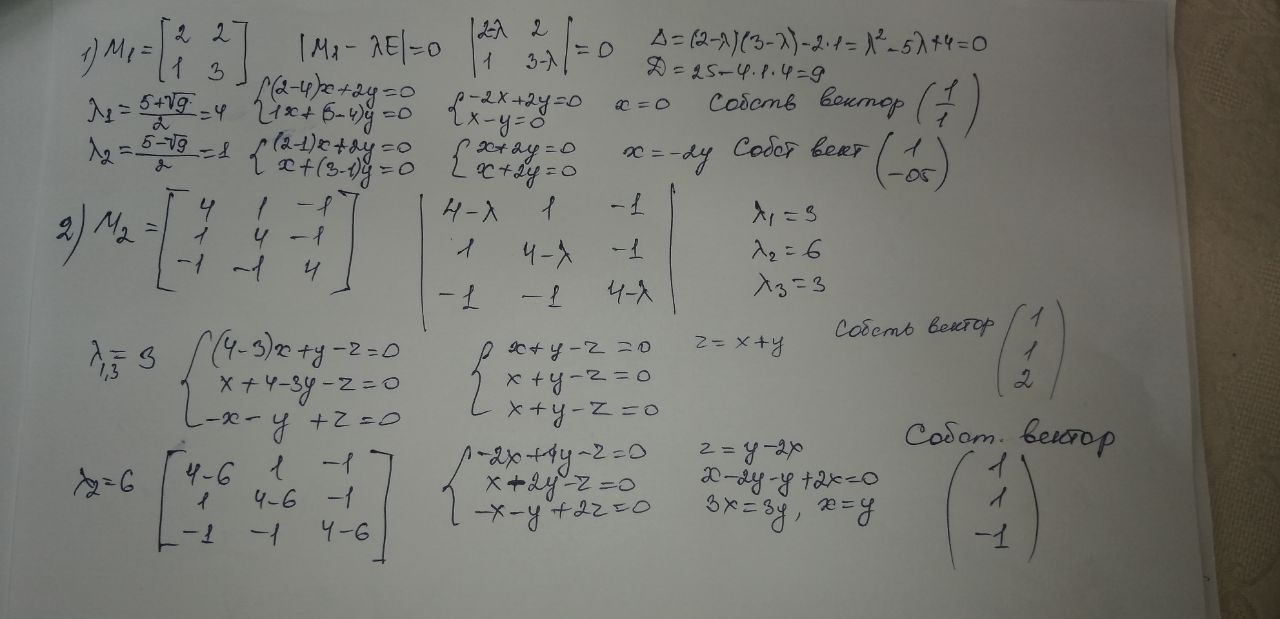 1) M₁ = [2 2; 1 3] |M₁ − λE| = 0 |2-λ 2; 1 3-λ| = 0 Δ = (2-λ)(3-λ) − 2·1 = λ² − 5λ + 4 = 0
D = 25 − 4·1·4 = 9
λ₁ = (5+√9)/2 = 4 {(2-4)x + 2y = 0; 1x + (3-4)y = 0 {-2x + 2y = 0; x − y = 0 x = 0 Собств вектор (1; 1)
λ₂ = (5−√9)/2 = 1 {(2-1)x + 2y = 0; x + (3-1)y = 0 {x + 2y = 0; x + 2y = 0 x = −2y Собст вект (1; −05)
2) M₂ = [4 1 −1; 1 4 −1; −1 −1 4] |4-λ 1 −1; 1 4-λ −1; −1 −1 4-λ| λ₁ = 3
λ₂ = 6
λ₃ = 3
λ₁,₃ = 3 {(4-3)x + y − z = 0; x + 4-3y − z = 0; −x − y + z = 0 {x + y − z = 0; x + y − z = 0; x + y − z = 0 z = x + y Собств вектор (1; 1; 2)
λ₂ = 6 [4-6 1 −1; 1 4-6 −1; −1 −1 4-6] {-2x + y − z = 0; x − 2y − z = 0; −x − y + 2z = 0 z = y − 2x
x − 2y − y + 2x = 0
3x = 3y, x = y
Собст. вектор (1; 1; −1)